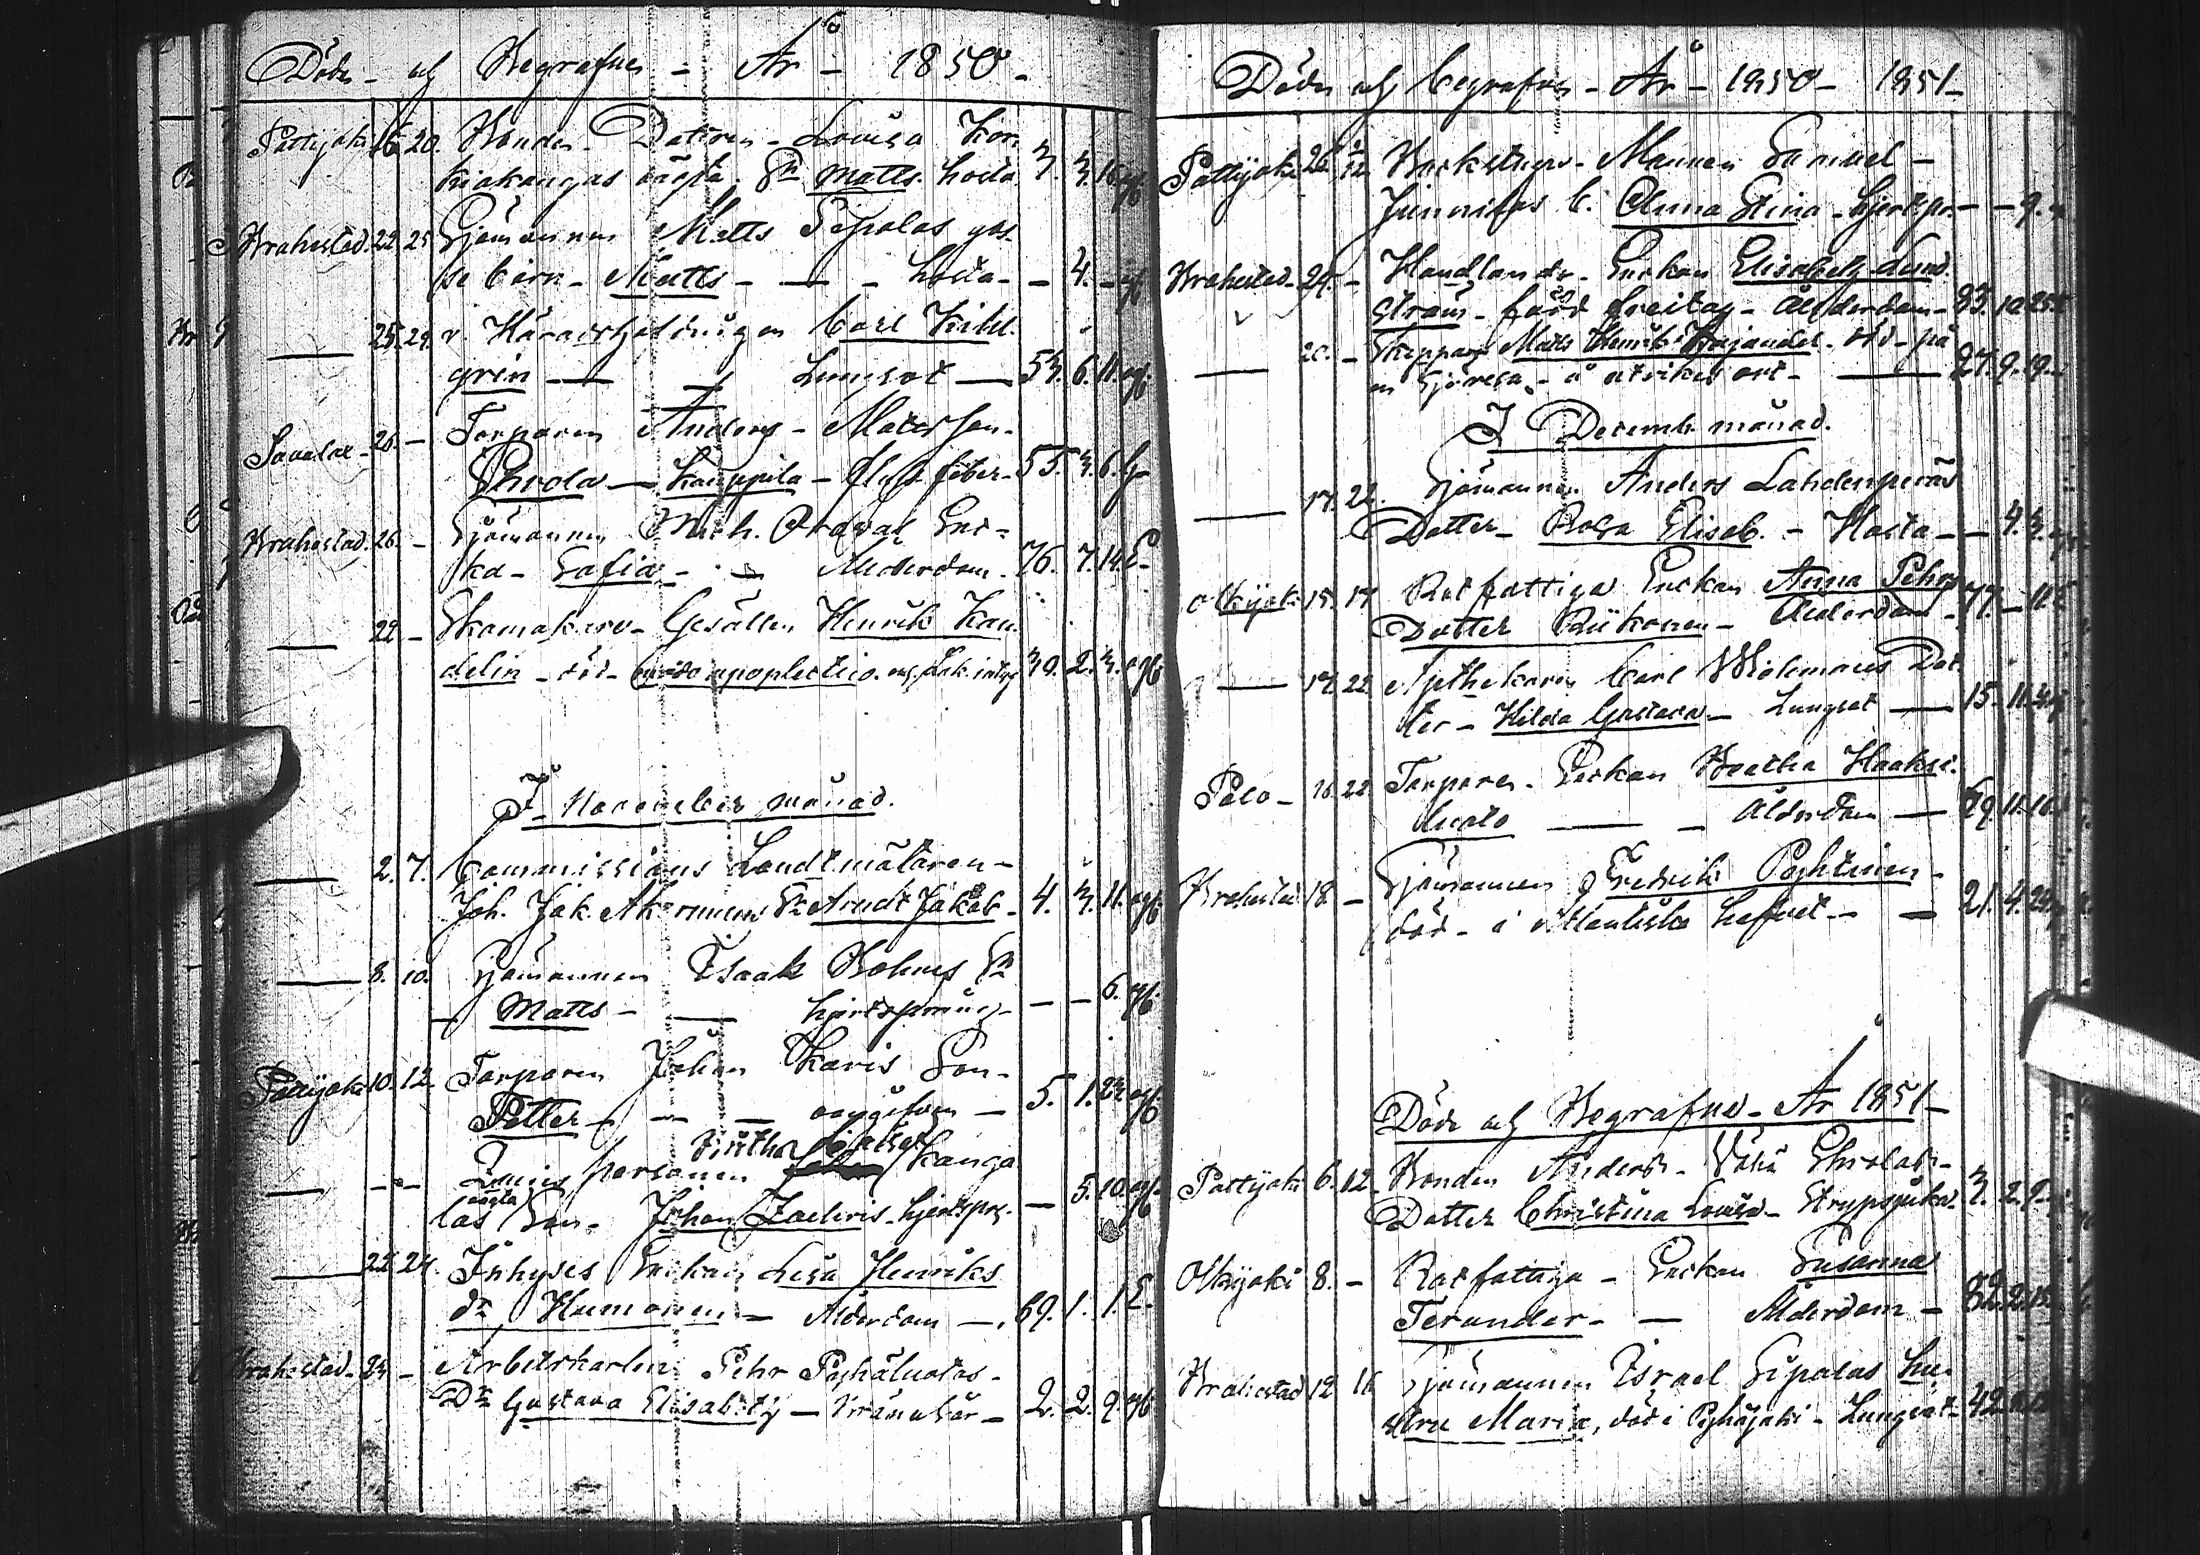 Döde och Begrafne - År - 1850 -
Pattijoki 16 20. Bonde - Dottren - Lovisa Kor
kiakangas oägta Sn Matts. hosta 3. 3. 16. ogft
Brahestad. 22. 25 Sjömannen Matts Sipolas gos-
se barn - Matts - — - hosta - - 4. - ogft
— 25. 29. v. Häradshöfdingen Carl Kihl.
grén — — Lungsot — 53. 6. 11. ogft
Savolax - 26. — Torparen Anders - Matsson.
Ohvola — Kauppila - feber - 55. 3. 6. G
Brahestad. 26. - Sjömannen Mich. Enc=
ka - Safia - - — Ålderdom. 76. 7. 14. E
— 29 - Skomakare - Gesällen Henrik Kan
delin - död 39. 2. 3. ogft
I November månad.
— 2. 7. Commissions Landtmätaren -
Joh. Jak. Åkermans Sn Arndt Jakob - 4. 3. 11. ogft
— 8. 10. Sjömannen Isaak Holmes Sn
— Matts - — hjertsprång - — — 6. ogft
Pattijoki 10. 12. Torparen Johan Ikaris Son -
Petter - — — oangifven — 5. 1. 23. ogft
— — Inhys personen Kanga
las oägta Son - Johan Zachris - hjertspng. — 5. 10. ogft
— 22. 24. Inhyses Enkan Lisa Henriks
dr Humonen — Ålderdom —. 69. 1. 1. E.
Brahestad - 23 - Arbetskarlen Pehr Pyhäluotos -
Dr Gustava Elisabeth — 2. 2. 9. ogft
Döde och begrafne - År - 1850 - 1851 -
Pattijoki 26. Backstugu - Mannen Samuel -
Junnikas b. Anna Stina - hjertspr. — — 9. -
Brahestad - 29. - Handlande - Enkan Elisabeth Lund
ström - född Freitag - Ålderdom - 83. 10. 25.
— 20. - Skepparen Matts Henrik Kajander - död på
en Sjöresa - å utrikes ort - — 27. 9. 19. -
I Decemb. månad.
— 17. 22. Sjömannen Anders Lahdenperäs
Dotter - Rosa Elisab. - Hosta - — 4. 3.
Olkijoki 15. 17 Rotfattiga Enkan Anna Pehrs
Dotter Riikonen - Ålderdom - 77. —
— 17. 22 Apthekaren Carl Dot
ter - Hilda Gustava - Lungsot — 15. 11.
Palo - 16. 22 Torpare - Enkan Beatha Haaksi.
luoto — - Ålderdom — 69. 11. 16
Brahestad 18. - Sjömannen Fredrik Pyhtinen -
död - i Atlantiska hafvet - — 21. 4.
Döde och Begrafne - År 1851 -
Pattijoki 6. 12. Bonden Anders - Ohvolas -
Dotter Christina Lovisa - Strypsjuka - 3. 2. 9. -
Olkijoki 8. - Rotfattiga - Enkan Susanna
Terander - — Ålderdom - 82. 2. 12.
Brahestad 12 16 Sjömannen Israel Sipolas hu-
stru Maria, död i Pyhäjoki - Lungsot - 42.